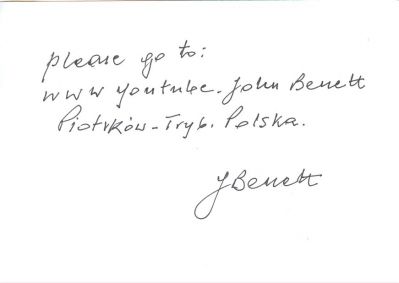 please go to:
www youtube. John Benett
Piotrków-Tryb. Polska.
JBenett